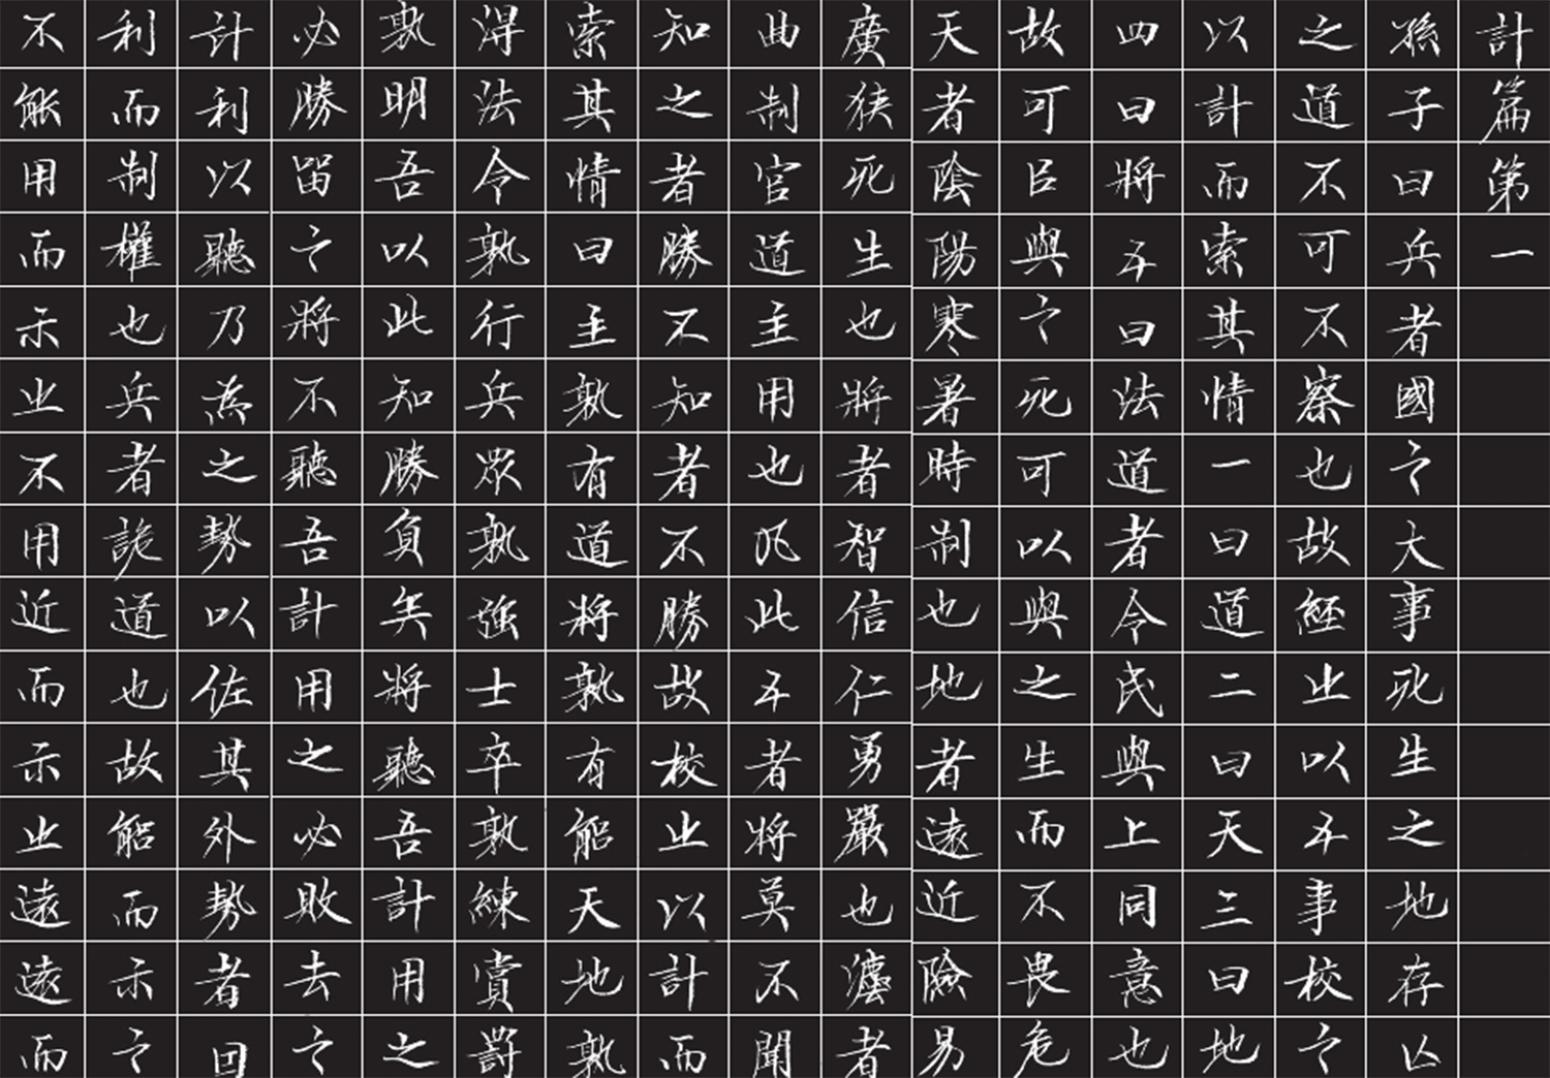 計篇第一
孫子曰兵者國之大事死生之地存亡
之道不可不察也故經之以五事校之
以計而索其情一曰道二曰天三曰地
四曰將五曰法道者令民與上同意也
故可臣與之死可以與之生而不畏危
天者陰陽寒暑時制也地者遠近險易
廣狹死生也將者智信仁勇嚴也灋者
曲制官道主用也凡此五者將莫不聞
知之者勝不知者不勝故校之以計而
索其情曰主孰有道將孰有能天地孰
得法令孰行兵眾孰強士卒孰練賞罰
孰明吾以此知勝負矣將聽吾計用之
必勝留之將不聽吾計用之必敗去之
計利以聽乃為之勢以佐其外勢者因
利而制權也兵者詭道也故能而示之
不能用而示之不用近而示之遠遠而